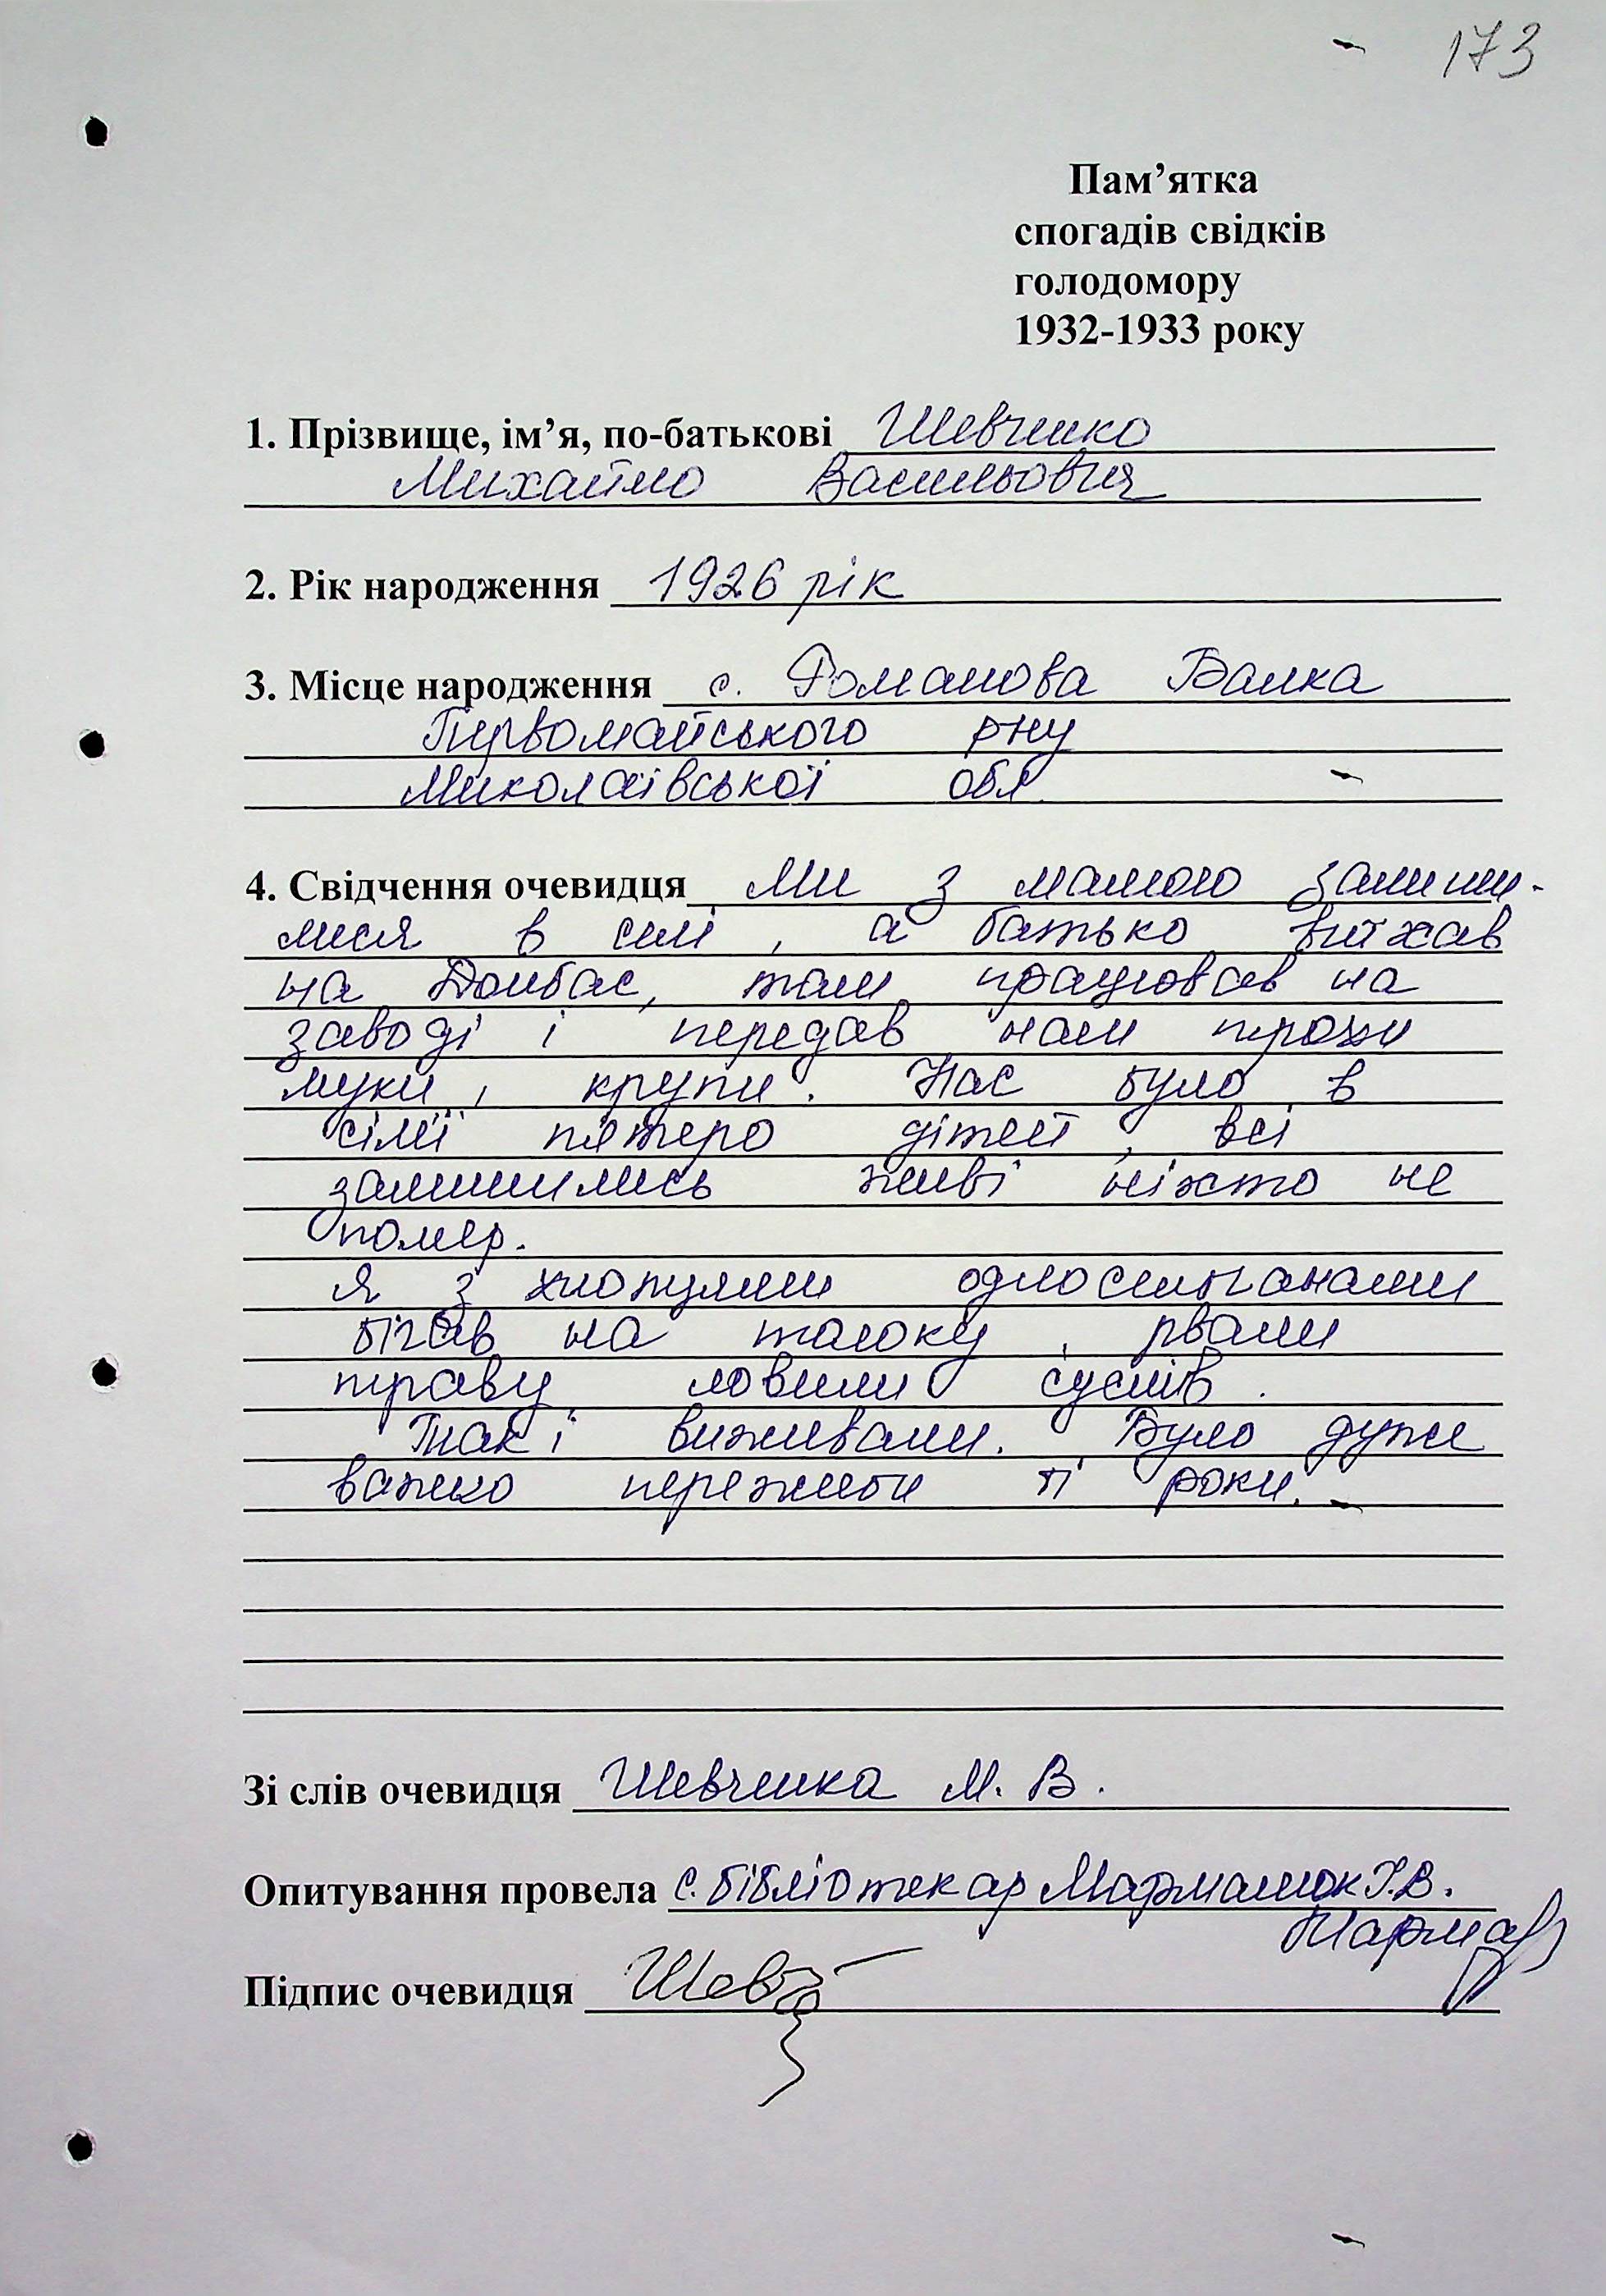 173
Пам’ятка
спогадів свідків
голодомору
1932-1933 року
1. Прізвище, ім’я, по-батькові Шевченко
Михайло Васильович
2. Рік народження 1926 рік
3. Місце народження с. Романова Балка
Первомайського р-ну
Миколаївської обл
4. Свідчення очевидця Ми з мамою залиши-
лися в селі, а батько виїхав
на Донбас, там працював на
заводі і передав нам трохи
муки, крупи. Нас було в
сімї пятеро дітей, всі
залишились живі ніхто не
помер.
Я з хлопцями односельчанами
бігав на толоку, рвали
траву, ловили суслів.
Так і виживали. Було дуже
важко пережити ті роки.
Зі слів очевидця Шевченка М. В.
Опитування провела с. бібліотекар Мармалюк І.В.
Підпис очевидця Шев